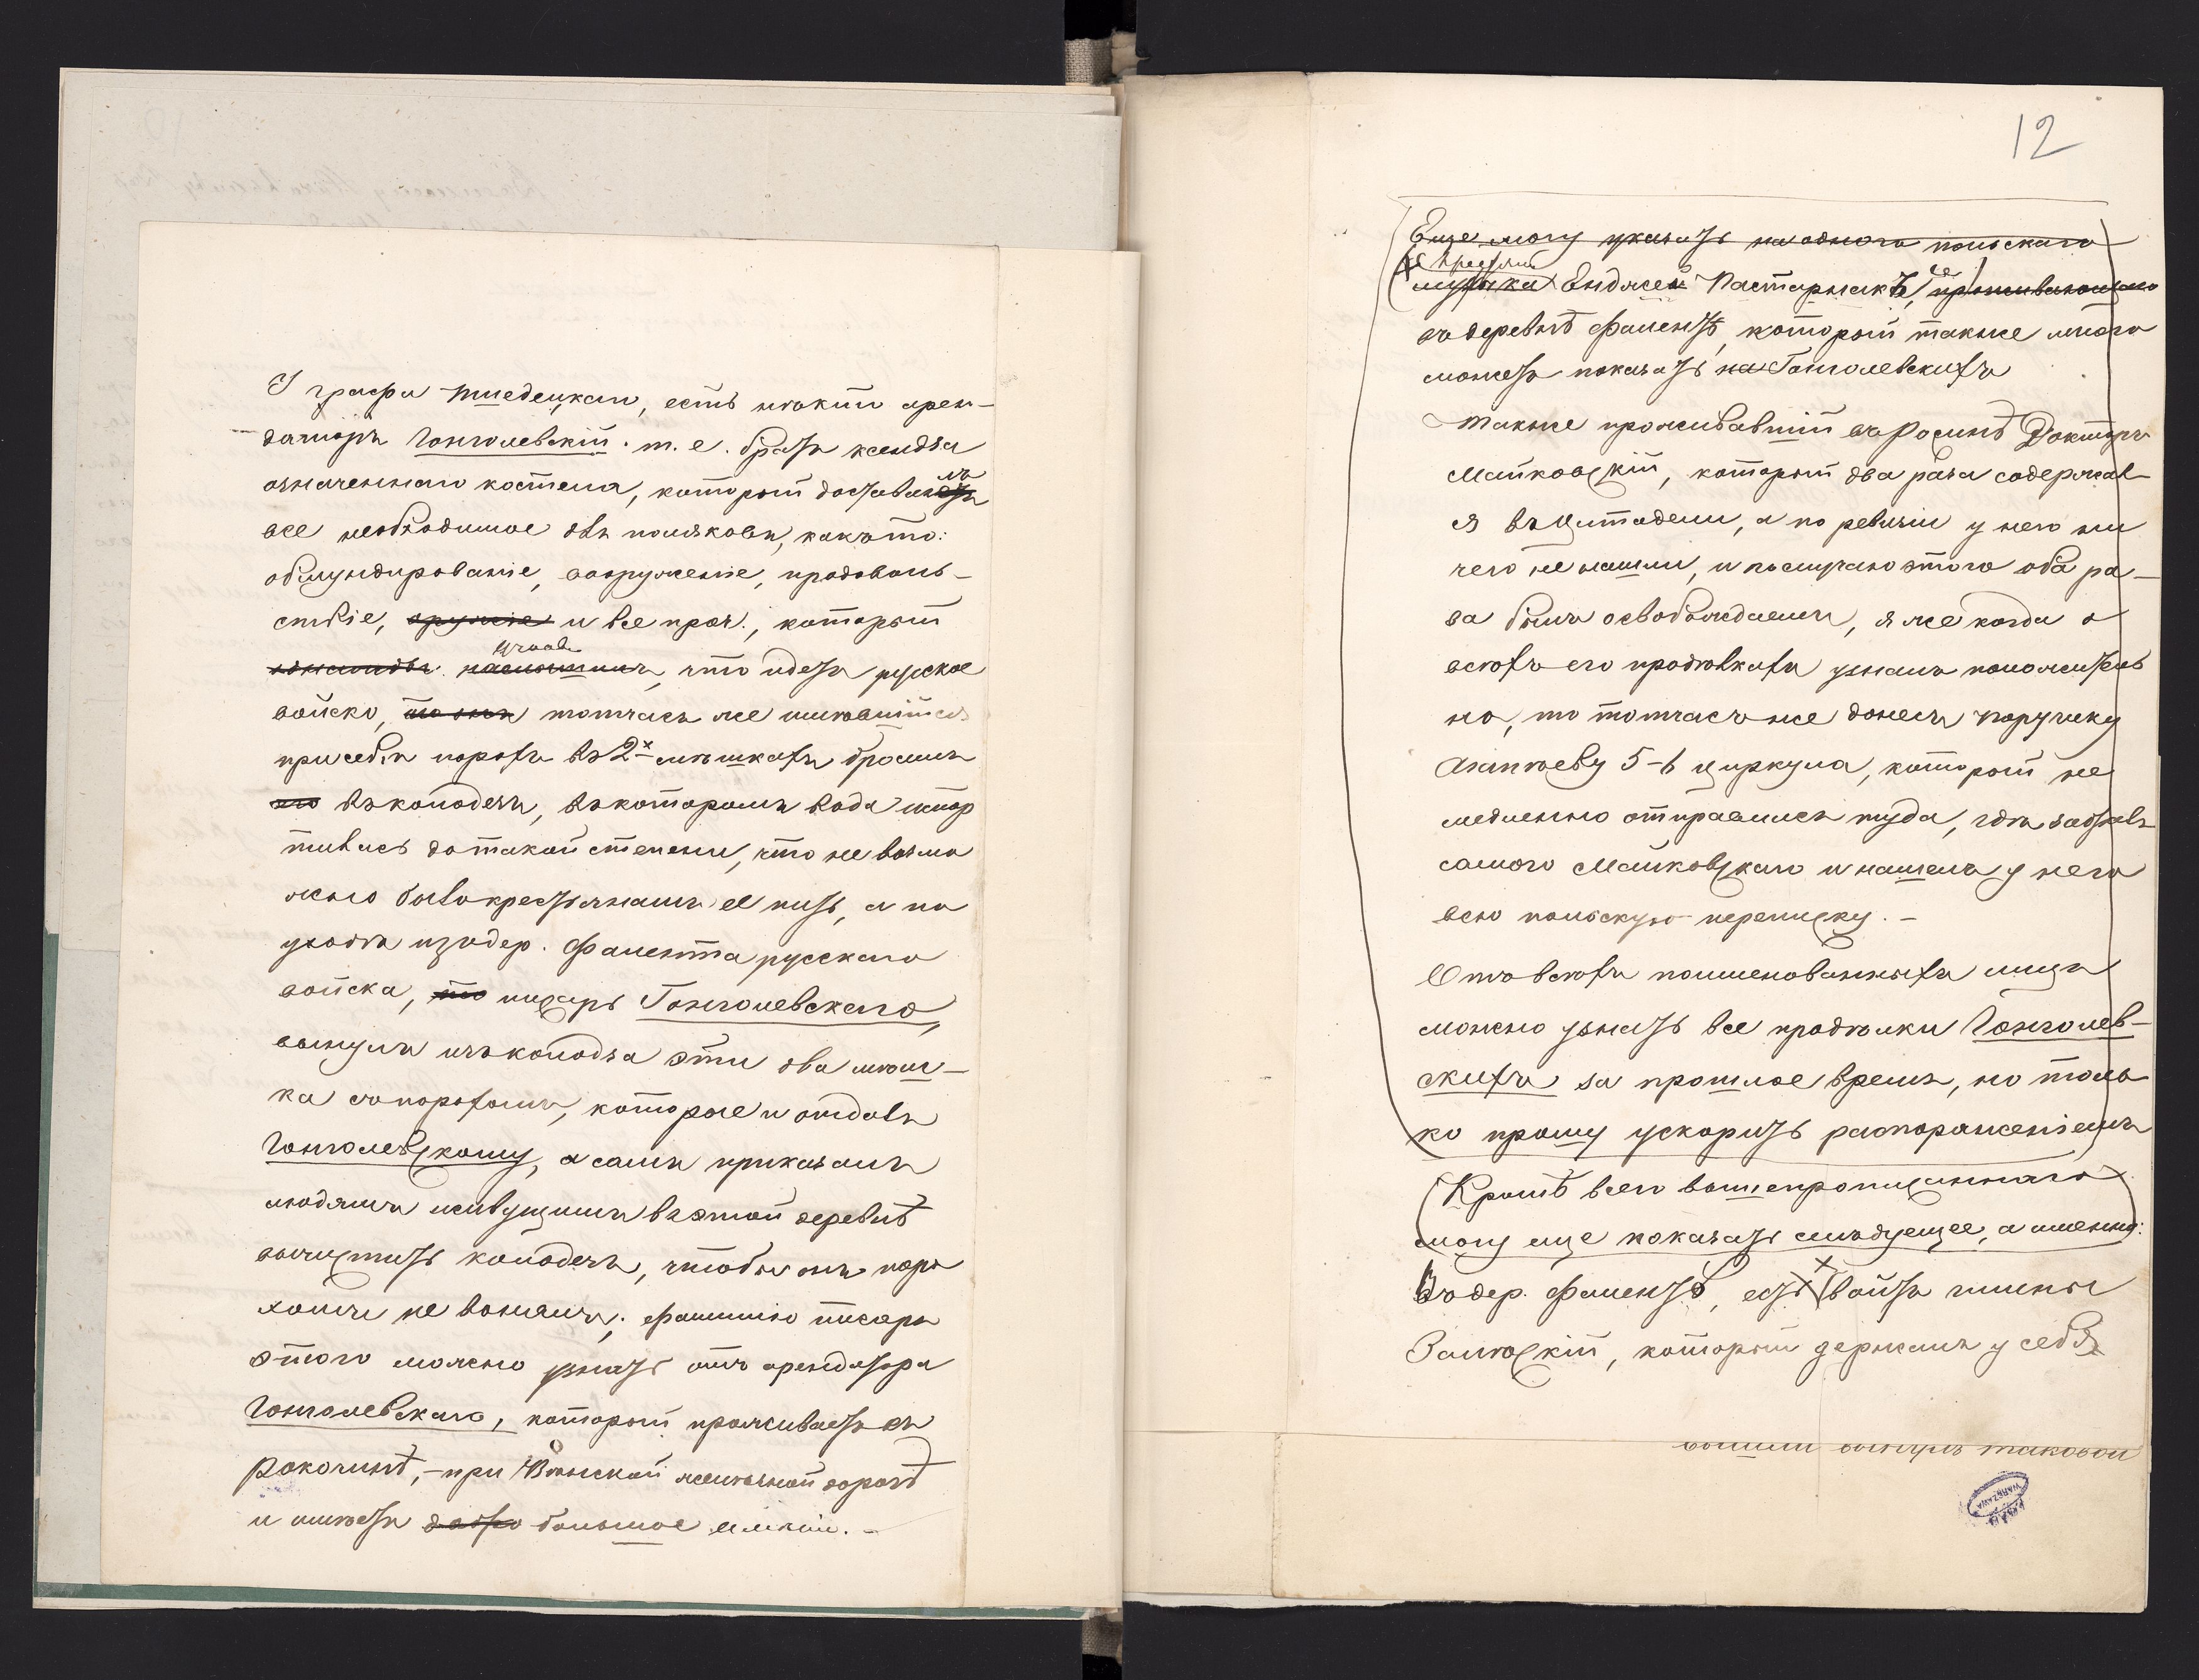 У графа тиедецкаго, есть нѣкто арен-
даторъ Гонголевскій. т. е. братъ ксендза
означеннаго костела, который доставлялъ
все необходимое для поляковъ, какъ то:
обмундированіе, вооруженіе, продоволь-
ствіе, оружіе и все проч., который
узнавъ, что идетъ русское
войско, тотчасъ же имѣвшійся
при себѣ порохъ въ 2х мѣшкахъ бросилъ
его въ колодезь, въ которомъ вода испор
тилась до такой степени, что не возмо
жно было крестьянамъ ее пить, а по
уходѣ изъ дер. Фалента русскаго
войска, то писарь Гонголевскаго,
вынулъ изъ колодза эти два мѣш-
ка съ порохомъ, которые и отдалъ
Гонголевскому, а самъ приказалъ
людямъ живущимъ въ этой деревнѣ
вычистить колодезь, чтобы онъ поро
хомъ не вонялъ; фамилію писаря
этого можно узнать отъ арендатора
Гонголевскаго, который проживаетъ въ
Рокочинѣ, - при Вѣнской желѣзной дорогѣ
и имѣетъ большое имѣніе. -
12
Еще могу указать на одного польскаго
мужика Енджей Пастарнакъ, проживающаго
въ деревнѣ Фалентѣ, который также много
можетъ показать на Гонголевскихъ
Также проживавшій въ Рашинѣ Докторъ
Майковскій, который два раза содержал-
ся въ цитадели, а по ревизіи у него ни
чего не нашли, и по случаю этого оба ра-
за былъ освобождаемъ, я же когда о
всѣхъ его продѣлкахъ узналъ положитель
но, то тотчасъ же донесъ поручику
5-6 циркула, который не
медленно отправился туда, гдѣ забралъ
самого Майковскаго и нашелъ у него
всю польскую переписку. -
Отъ всѣхъ поименованныхъ лицъ
можно узнать все продѣлки Гонголев-
скихъ за прошлое время, но толь
ко прошу ускорить распоряженіемъ
Кромѣ всего вышепрописаннаго
могу еще показать слѣдующее, а именно:
Въ дер. Фалентѣ, есть войтъ гмины
Залѣскій, который держалъ у себя
вынуть таковой
WARSZAWA